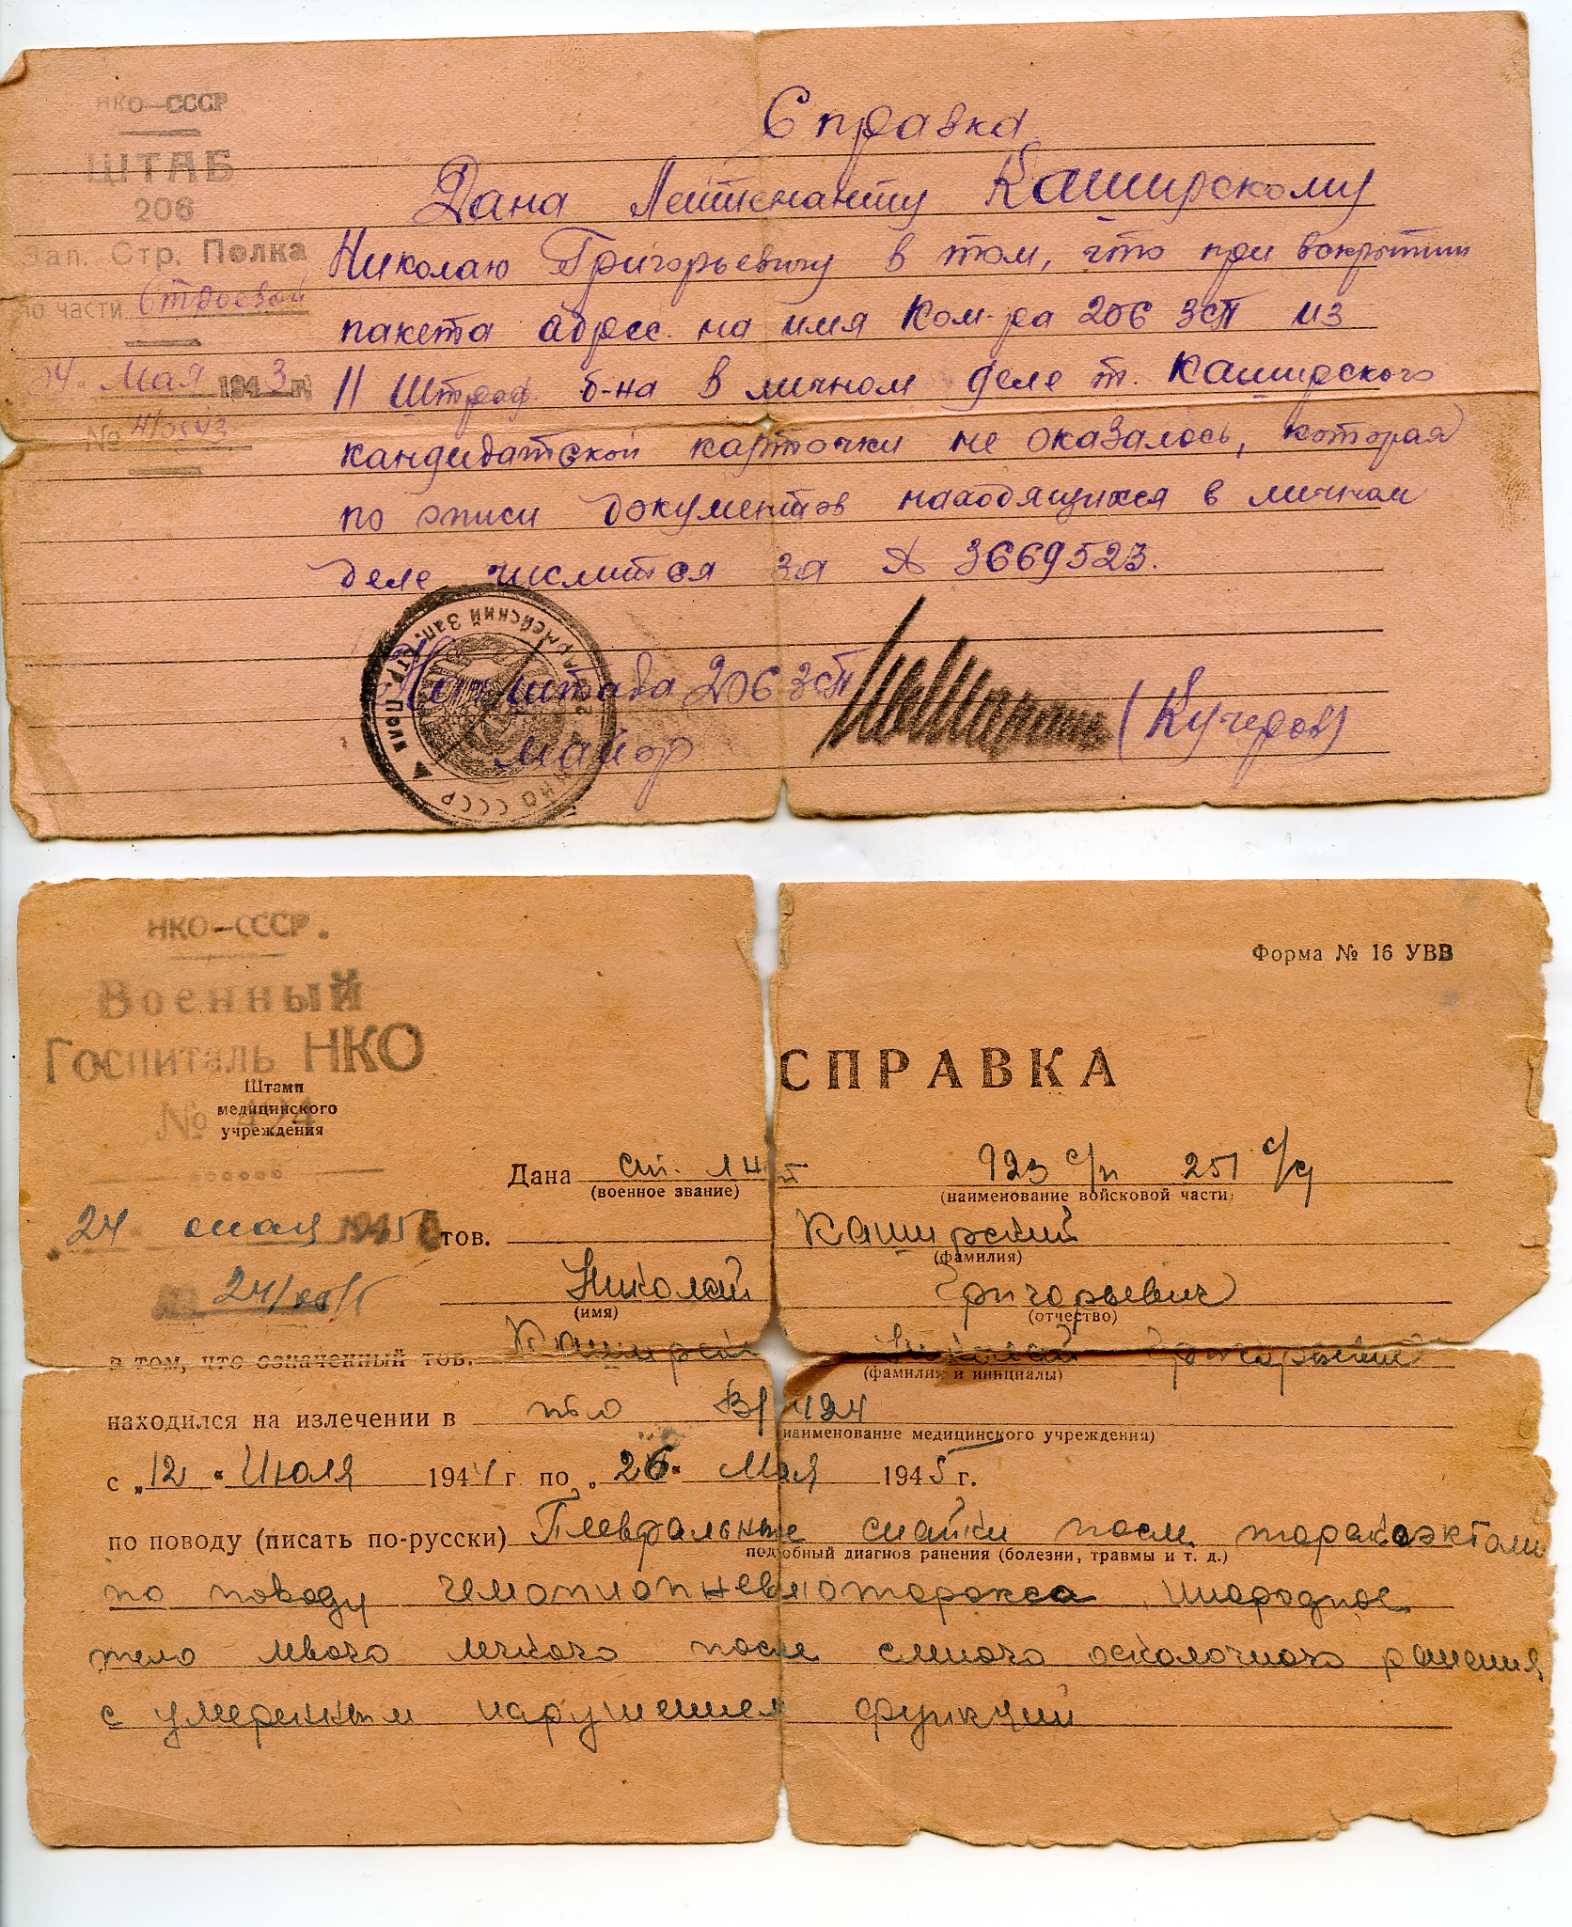 НКО-СССР
ШТАБ
206
Зап. Стр. Полка
по части Строевой
24. Мая 1943 г.
№
Справка
Дана Лейтенанту Каширскому
Николаю Григорьевичу в том, что при вскрытии
пакета адресс. на имя Ком-ра 206 ЗСП из
11 Штраф. б-на в личном деле т. Каширского
кандидатской карточки не оказалось, которая
по описи документов находящихся в личном
деле числится за № 3669523.
Нач штаба 206 ЗСП
майор (Кучеров)
НКО СССР
Армейский Зап. Стр. Полк
НКО-СССР.
Военный
Госпиталь НКО
№ 424
Штамп
медицинского
учреждения
24 мая 1945
Форма № 16 УВВ
СПРАВКА
Дана ст. л-нт 923 с/п 251 с/д
(военное звание) (наименование войсковой части)
тов. Каширский
(фамилия)
Николай Григорьевич
(имя) (отчество)
в том, что означенный тов. Каширский Николай Григорьевич
(фамилия и инициалы)
находился на излечении в 424
наименование медицинского учреждения)
с „12“ Июля 1944 г. по „26“ Мая 1945 г.
по поводу (писать по-русски) Плевральные спайки после торакоэктомии
подробный диагноз ранения (болезни, травмы и т. д.)
по поводу гемопиопневмоторокса, инородное
тело левого легкого после слепого осколочного ранения
с умеренным нарушением функций